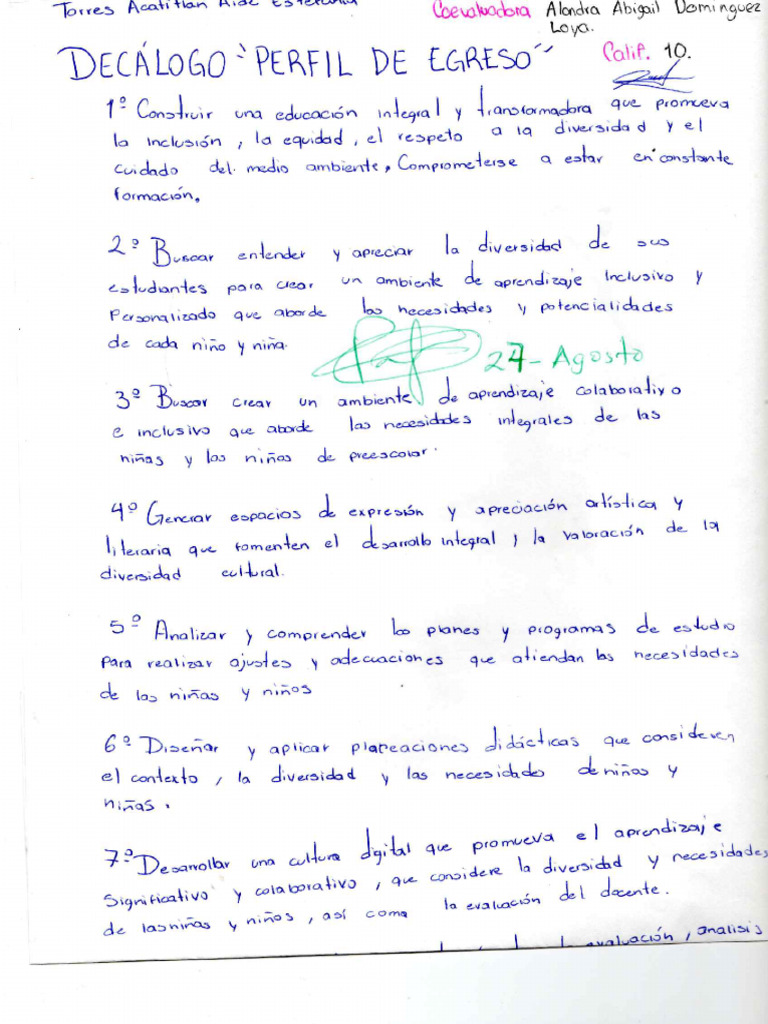 Torres Acatitlan Aide Estefania
Coevaluadora Alondra Abigail Dominguez
Loya.
DECÁLOGO "PERFIL DE EGRESO"
Calif. 10.
1º Construir una educación integral y transformadora que promueva
la inclusión, la equidad, el respeto a la diversidad y el
cuidado del medio ambiente, Comprometerse a estar en constante
formación.
2º Buscar entender y apreciar la diversidad de sus
estudiantes para crear un ambiente de aprendizaje Inclusivo y
Personalizado que aborde las necesidades y potencialidades
de cada niño y niña.
27-Agosto
3º Buscar crear un ambiente de aprendizaje colaborativo
e inclusivo que aborde las necesidades integrales de las
niñas y los niños de preescolar.
4º Generar espacios de expresión y apreciación artística y
literaria que fomenten el desarrollo integral y la valoración de la
diversidad cultural.
5º Analizar y comprender los planes y programas de estudio
para realizar ajustes y adecuaciones que atiendan las necesidades
de las niñas y niños
6º Diseñar y aplicar planeaciones didácticas que consideren
el contexto, la diversidad y las necesidades de niños y
niñas.
7º Desarrollar una cultura digital que promueva el aprendizaje
significativo y colaborativo, que considere la diversidad y necesidades
de las niñas y niños, así como la evaluación del docente.
evaluación, analisis